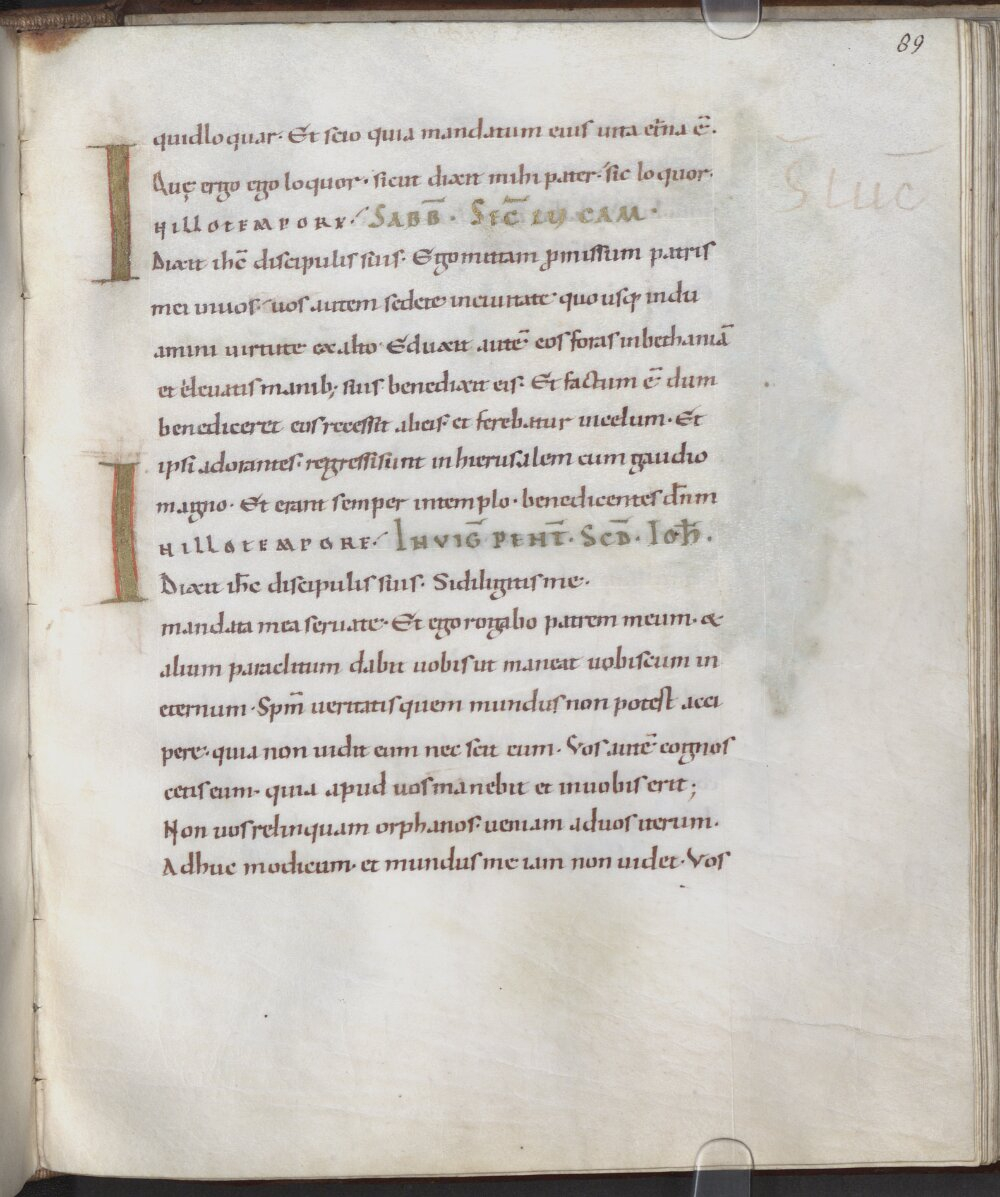 89
quidloquar· Et scio quia mandatum eius uita et̄na ē·
Quę ergo ego loquor· sicut dixit mihi pater· sic loquor·
IN ILLO TEMPORE· SABB̄· SEC̄ LUCAM·
Dixit ih̄c discipulis suis· Ego mittam ꝓmissum patris
mei in uos· uos autem sedete in ciuitate· quo usq; indu
amini uirtute ex alto· Eduxit autē eos foras in bethaniā
et eleuatis manib; suis benedixit eis· Et factum ē dum
benediceret eos recessit ab eis· et ferebatur in celum· Et
ipsi adorantes· regressi sunt in hierusalem cum gaudio
magno· Et erant semper in templo· benedicentes dn̄m
IN ILLO TEMPORE· IN VIḠ PENT̄· SCD̄· IOH̄·
Dixit ih̄c discipulis suis· Si diligitis me·
mandata mea seruate· Et ego rogabo patrem meum· &
alium paraclitum dabit uobis ut maneat uobiscum in
eternum· Spm̄ ueritatis quem mundus non potest acci
pere· quia non uidit eum nec scit eum· Vos autē cognos
cetis eum· quia apud uos manebit et in uobis erit;
Non uos relinquam orphanos· ueniam ad uos iterum·
Adhuc modicum· et mundus me iam non uidet· Vos
S̄ luc̄